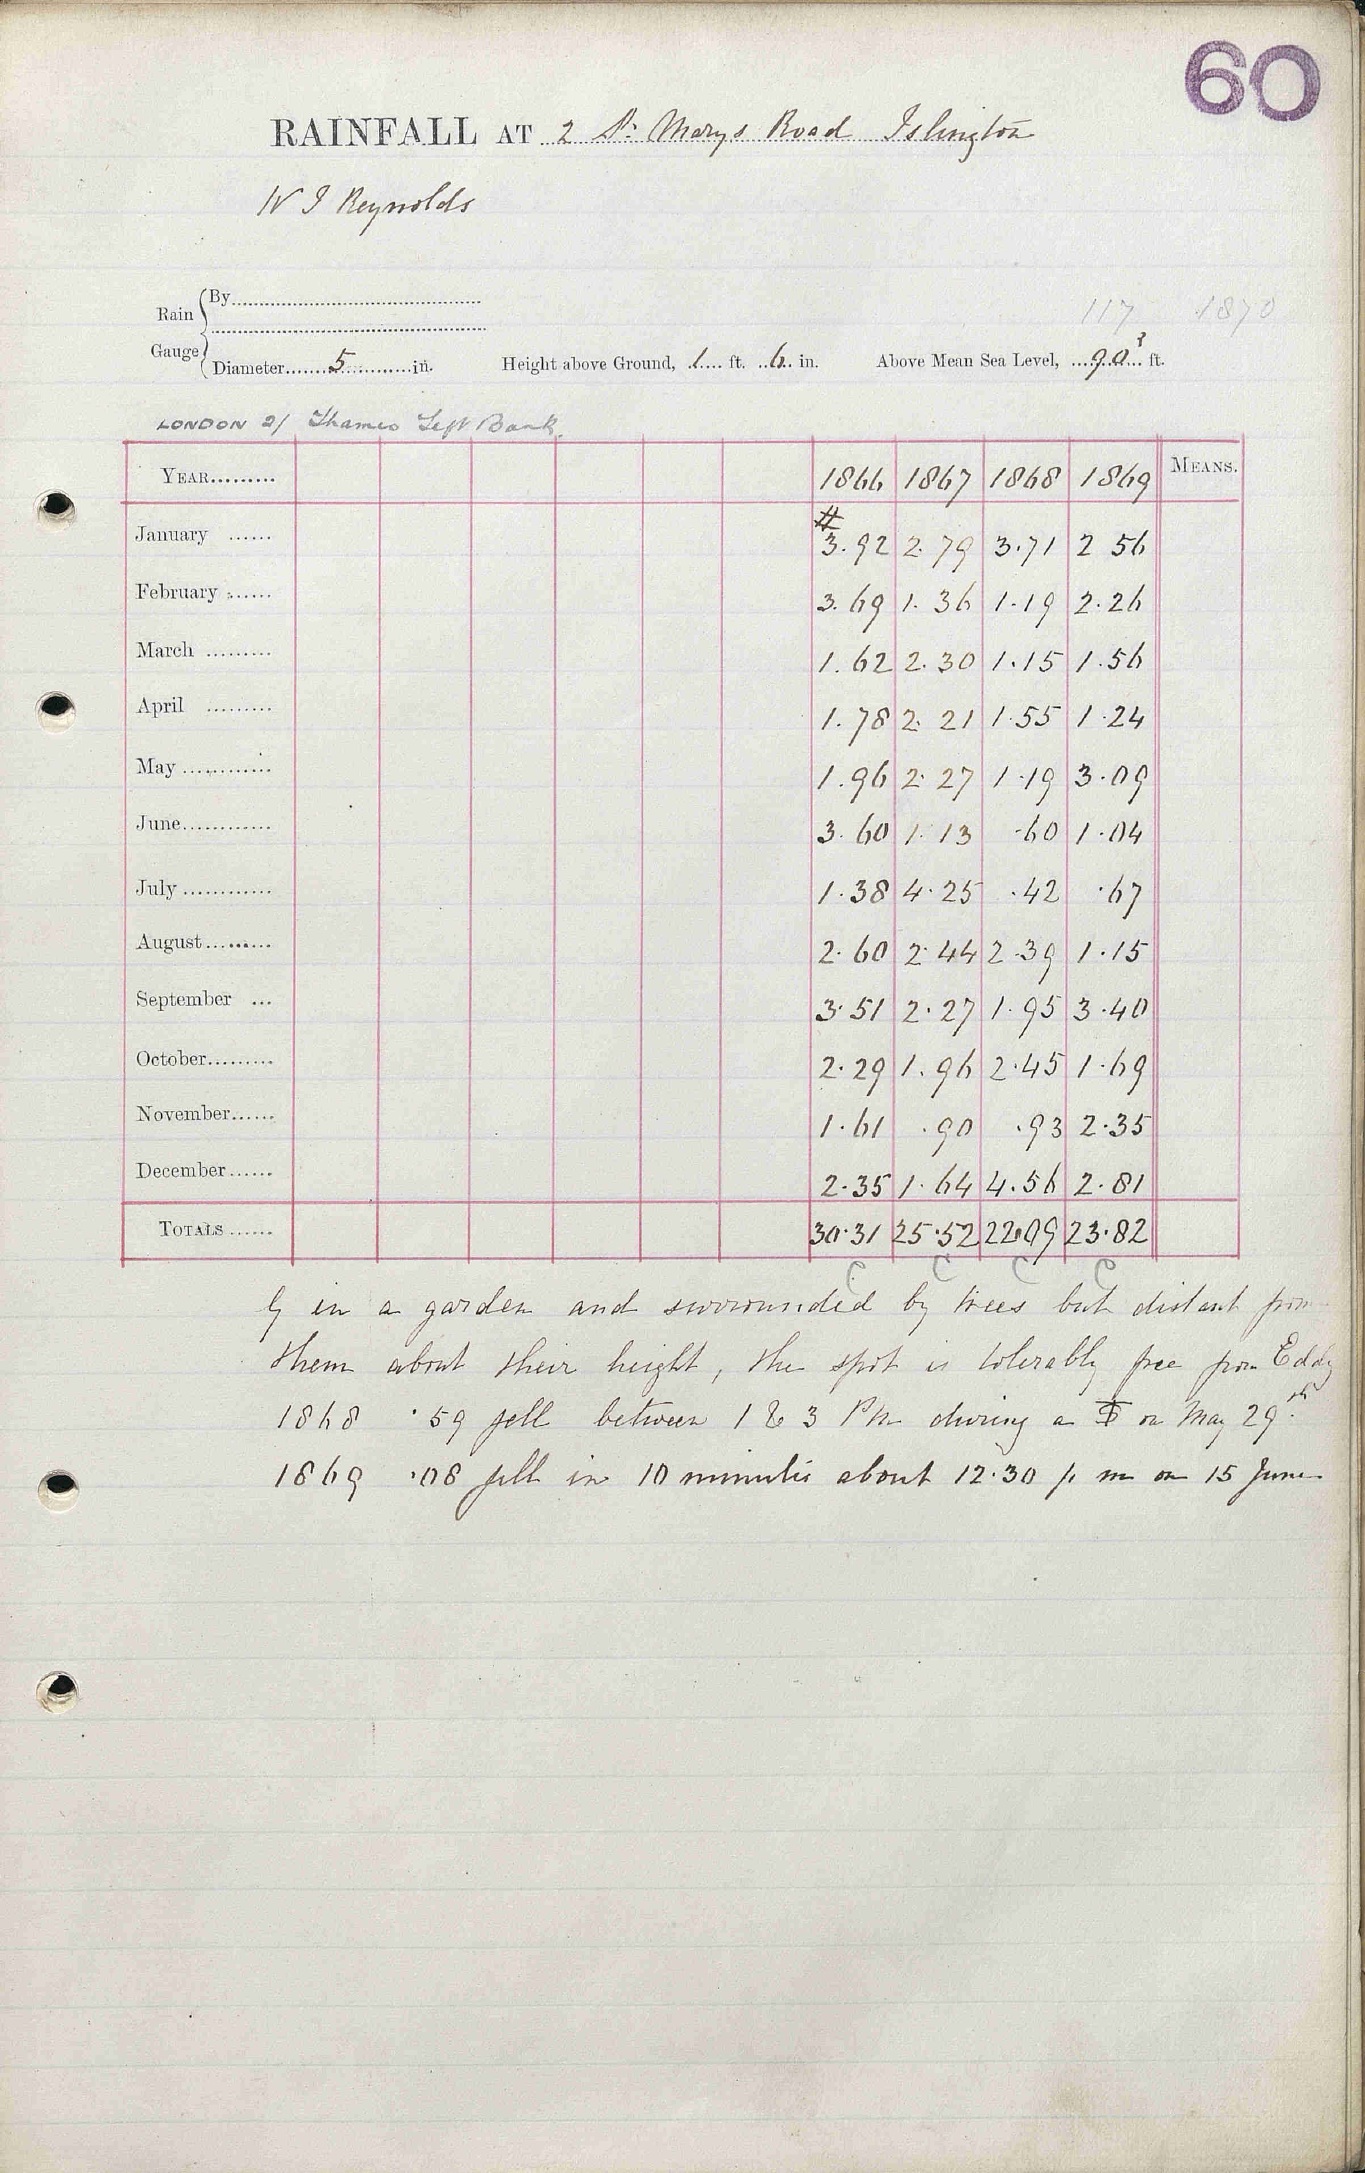 60
RAINFALL AT 2 St Marys Road Islington
W J Reynolds
Rain Gauge { By
117 1870
Diameter 5 in. Height above Ground, 1 ft. 6 in. Above Mean Sea Level, 90 ft.
LONDON 21 Thames Left Bank
YEAR 1866 1867 1868 1869 MEANS.
January 3.92 2.79 3.71 2 56
February 3.69 1.36 1.19 2.26
March 1.62 2.30 1.15 1.56
April 1.78 2.21 1.55 1.24
May 1.96 2.27 1.19 3.09
June 3.60 1.13 .60 1.04
July 1.38 4.25 .42 .67
August 2.60 2.44 2.39 1.15
September 3.51 2.27 1.95 3.40
October 2.29 1.96 2.45 1.69
November 1.61 .90 .93 2.35
December 2.35 1.64 4.56 2.81
TOTALS 30.31 25.52 22.09 23.82
c c c c
G in a garden and surrounded by trees but distant from
them about their height, the spot is tolerably free from Eddy
1868 .59 fell between 1 & 3 PM during a on May 29th.
1869 .08 fell in 10 minutes about 12.30 p m on 15 June